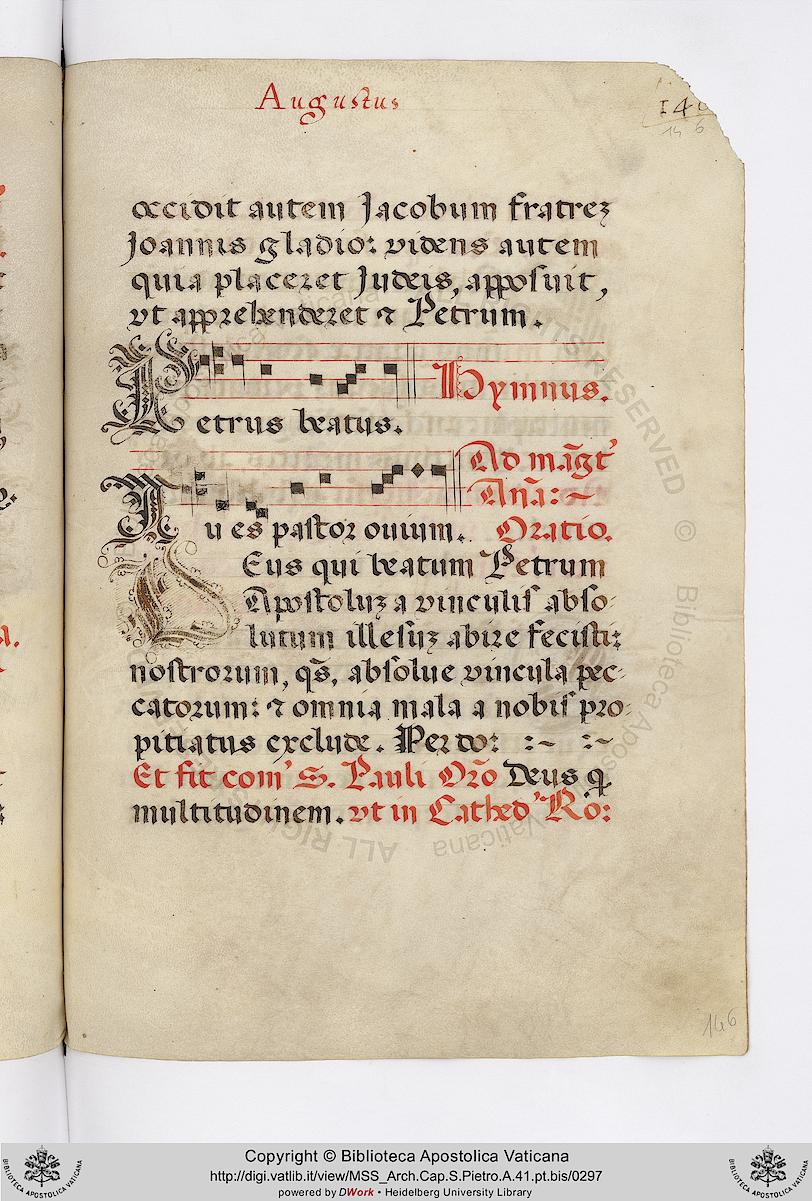 Augustus
146
14 6
occidit autem Jacobum fratrez
Joannis gladio: videns autem
quia placeret Judeis, apposuit,
vt apprehenderet ⁊ Petrum.
Hymnus.
Petrus beatus.
Ad mag̃t'
Añã:~
Tu es pastor ouium. Oratio.
Deus qui beatum Petrum
Apostoluz a vinculis abso-
lutum illesuz abire fecisti:
nostrorum, qs̃, absolue vincula pec-
catorum: ⁊ omnia mala a nobis pro-
pitiatus exclude. Per do: :~ :~
Et fit com' S. Pauli Orõ Deus q
multitudinem. vt in Cathed' Ro:
146
Copyright © Biblioteca Apostolica Vaticana
http://digi.vatlib.it/view/MSS_Arch.Cap.S.Pietro.A.41.pt.bis/0297
powered by DWork • Heidelberg University Library